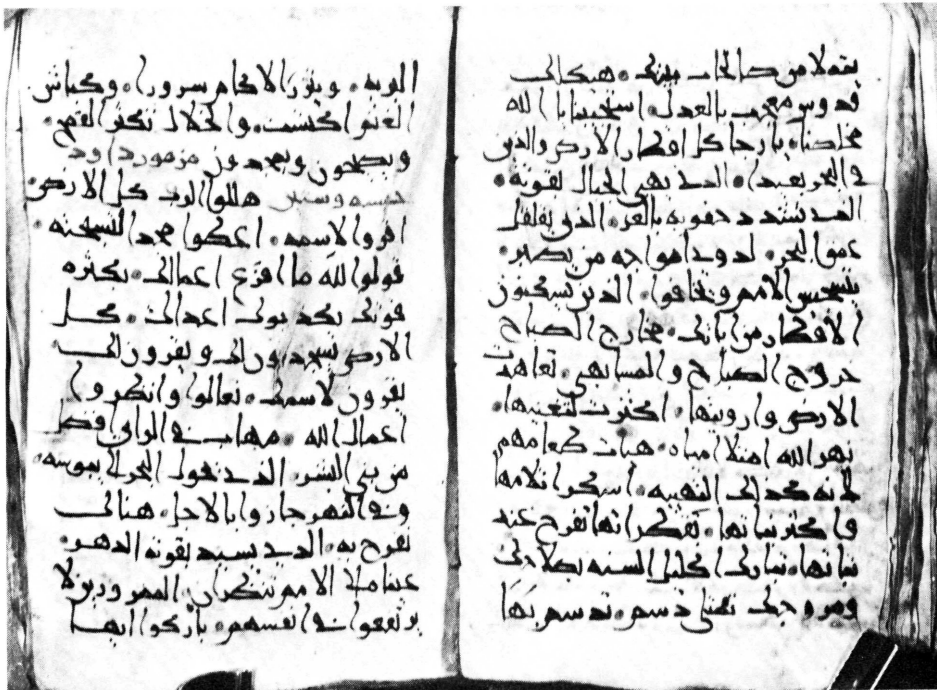 بقولا من صالحات بيتك • هيكلك
قدوس معجب بالعدل • استجيبنا يا الله
مخلصنا • يا رجا كل اقطار الارض والذين
في البحر بعيدا • الذي يهيي الجبال بقوته •
حقويه بالعز • الذي يقلقل
عمق البحر • امواجه من يصبر •
يتسجس الامم ويخافوا • الذين يسكنون
الاقطار من اياتك • مخارج الصباح
خروج الصباح والمسا بهي • تعاهدت
الارض وارويتها • اكثرت لتغنيها •
نهر الله امتلا مياه • هيات طعامهم
لانه كذلك التهييه • اسكر اتلامها
واكثر نباتها • تفرح عند
نباتها • تبارك اكليل السنه بصلاحك
ومروجك تمتلي دسم • تدسم بها
البريه • ويتزر الاكام سرورا • وكباش
الغنم اكتست • تكثر القمح •
ويصيحون ويمجدون مزمور داود
خمسه وستين هللوا للرب كل الارض •
اقروا لاسمه • اعطوا مجد لتسبحته •
قولوا لله ما افزع اعمالك • بكثره
قوتك يكذبوك اعداك • كل
الارض يسجدون لك ويقرون لك
يقرون لاسمك • تعالوا وانظروا
اعمال الله • مهاب في الراي افضل
من بني البشر • الذي يحول البحر الى يبوسه •
وفي النهر جازوا بالارجل • هناك
نفرح به • الذي يسيد بقوته الدهر •
عيناه الى الامم تنظران • لا
يرتفعوا في انفسهم • باركوا ايها